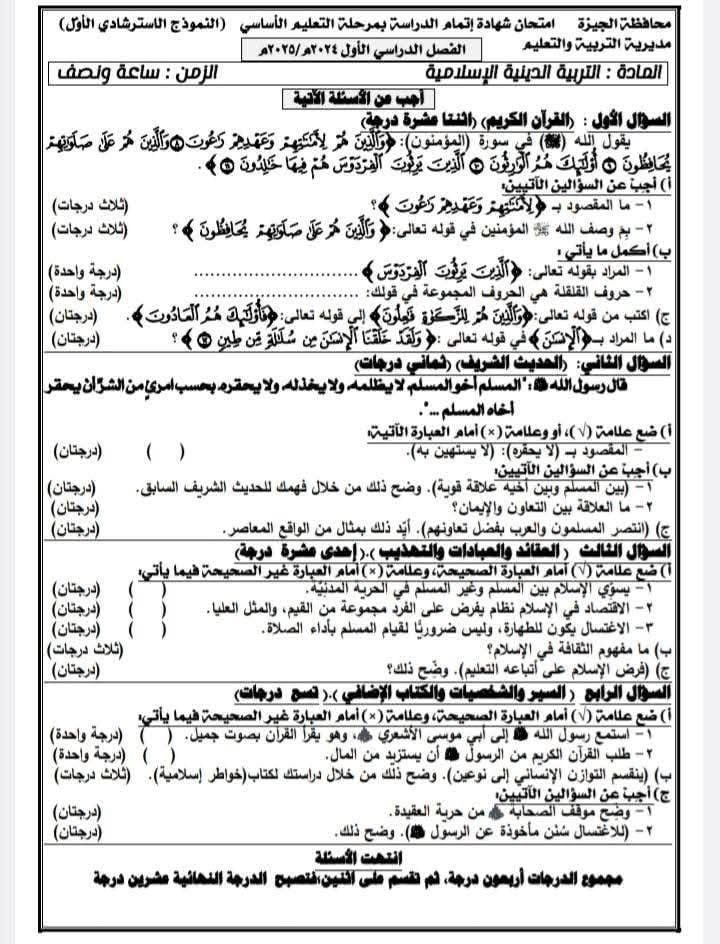 محافظة الجيزة امتحان شهادة إتمام الدراسة بمرحلة التعليم الأساسي (النموذج الاسترشادي الأول)
مديرية التربية والتعليم الفصل الدراسي الأول ٢٠٢٤م/٢٠٢٥م
المادة : التربية الدينية الإسلامية الزمن : ساعة ونصف
أجب عن الأسئلة الآتية
السؤال الأول : (القرآن الكريم) (اثنتا عشرة درجة)
يقول الله (ﷻ) في سورة (المؤمنون): ﴿وَالَّذِينَ هُمْ لِأَمَانَاتِهِمْ وَعَهْدِهِمْ رَاعُونَ ۝٨ وَالَّذِينَ هُمْ عَلَىٰ صَلَوَاتِهِمْ
يُحَافِظُونَ ۝٩ أُولَٰئِكَ هُمُ الْوَارِثُونَ ۝١٠ الَّذِينَ يَرِثُونَ الْفِرْدَوْسَ هُمْ فِيهَا خَالِدُونَ ۝١١﴾.
أ) أجب عن السؤالين الآتيين:
١- ما المقصود بـ ﴿لِأَمَانَاتِهِمْ وَعَهْدِهِمْ رَاعُونَ﴾؟ (ثلاث درجات)
٢- بم وصف الله ﷻ المؤمنين في قوله تعالى: ﴿وَالَّذِينَ هُمْ عَلَىٰ صَلَوَاتِهِمْ يُحَافِظُونَ﴾؟ (ثلاث درجات)
ب) أكمل ما يأتي:
١- المراد بقوله تعالى: ﴿الَّذِينَ يَرِثُونَ الْفِرْدَوْسَ﴾ .............................. (درجة واحدة)
٢- حروف القلقلة هي الحروف المجموعة في قولك: ........................ (درجة واحدة)
ج) اكتب من قوله تعالى: ﴿وَالَّذِينَ هُمْ لِلزَّكَاةِ فَاعِلُونَ﴾ إلى قوله تعالى: ﴿فَأُولَٰئِكَ هُمُ الْعَادُونَ﴾. (درجتان)
د) ما المراد بـ ﴿الْإِنْسَانَ﴾ في قوله تعالى : ﴿وَلَقَدْ خَلَقْنَا الْإِنْسَانَ مِنْ سُلَالَةٍ مِنْ طِينٍ ۝١٢﴾؟ (درجتان)
السؤال الثاني: (الحديث الشريف) (ثماني درجات)
قال رسول الله ﷺ: "المسلم أخو المسلم، لا يظلمه، ولا يخذله، ولا يحقره، بحسب امرئٍ من الشرّ أن يحقر
أخاه المسلم ...".
أ) ضع علامة (√)، أو وعلامة (×) أمام العبارة الآتية:
- المقصود بـ (لا يحقره): (لا يستهين به). ( ) (درجتان)
ب) أجب عن السؤالين الآتيين:
١- (بين المسلم وبين أخيه علاقة قوية). وضح ذلك من خلال فهمك للحديث الشريف السابق. (درجتان)
٢- ما العلاقة بين التعاون والإيمان؟ (درجتان)
ج) (انتصر المسلمون والعرب بفضل تعاونهم). أيّد ذلك بمثال من الواقع المعاصر. (درجتان)
السؤال الثالث ( العقائد والعبادات والتهذيب ).( إحدى عشرة درجة)
أ) ضع علامة (√) أمام العبارة الصحيحة، وعلامة (×) أمام العبارة غير الصحيحة فيما يأتي:
١- يسوّي الإسلام بين المسلم وغير المسلم في الحرية المدنيّة. ( ) (درجتان)
٢- الاقتصاد في الإسلام نظام يفرض على الفرد مجموعة من القيم، والمثل العليا. ( ) (درجتان)
٣- الاغتسال يكون للطهارة، وليس ضروريًّا لقيام المسلم بأداء الصلاة. ( ) (درجتان)
ب) ما مفهوم الثقافة في الإسلام؟ (ثلاث درجات)
ج) (فرض الإسلام على أتباعه التعليم). وضّح ذلك؟ (درجتان)
السؤال الرابع ( السير والشخصيات والكتاب الإضافي ).( تسع درجات)
أ) ضع علامة (√) أمام العبارة الصحيحة، وعلامة (×) أمام العبارة غير الصحيحة فيما يأتي:
١- استمع رسول الله ﷺ إلى أبي موسى الأشعري، وهو يقرأ القرآن بصوت جميل. ( ) (درجة واحدة)
٢- طلب القرآن الكريم من الرسول ﷺ أن يستزيد من المال. ( ) (درجة واحدة)
ب) (ينقسم التوازن الإنساني إلى نوعين). وضح ذلك من خلال دراستك لكتاب(خواطر إسلامية). (ثلاث درجات)
ج) أجب عن السؤالين الآتيين:
١- وضح موقف الصحابة من حرية العقيدة. (درجتان)
٢- (للاغتسال سُنَن مأخوذة عن الرسول ﷺ). وضح ذلك. (درجتان)
انتهت الأسئلة
مجموع الدرجات أربعون درجة، ثم تقسم على اثنين،فتصبح الدرجة النهائية عشرين درجة